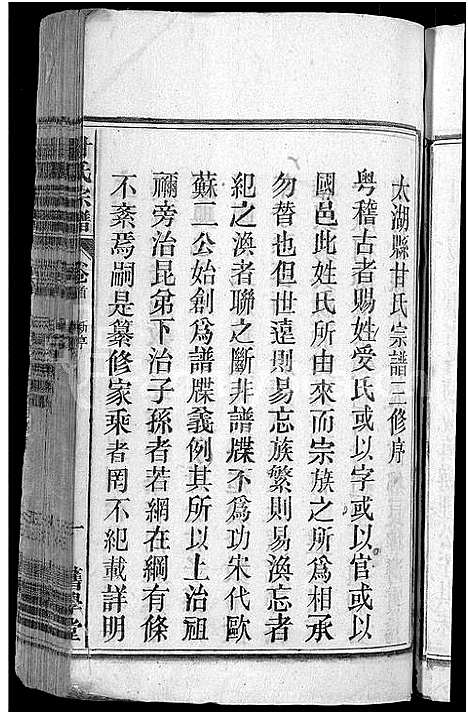 太湖縣甘氏宗譜三修序
粵稽古者賜姓受氏或以字或以官或以
國邑此姓氏所由來而宗族之所爲相承
勿替也但世遠則易忘族繁則易渙忘者
紀之渙者聯之斷非譜牒不爲功宋代歐
蘇二公始創爲譜牒義例其所以上治祖
禰旁治昆弟下治子孫者若網在綱有條
不紊焉嗣是纂修家乘者罔不紀載詳明
甘氏宗譜
卷首
新序
一